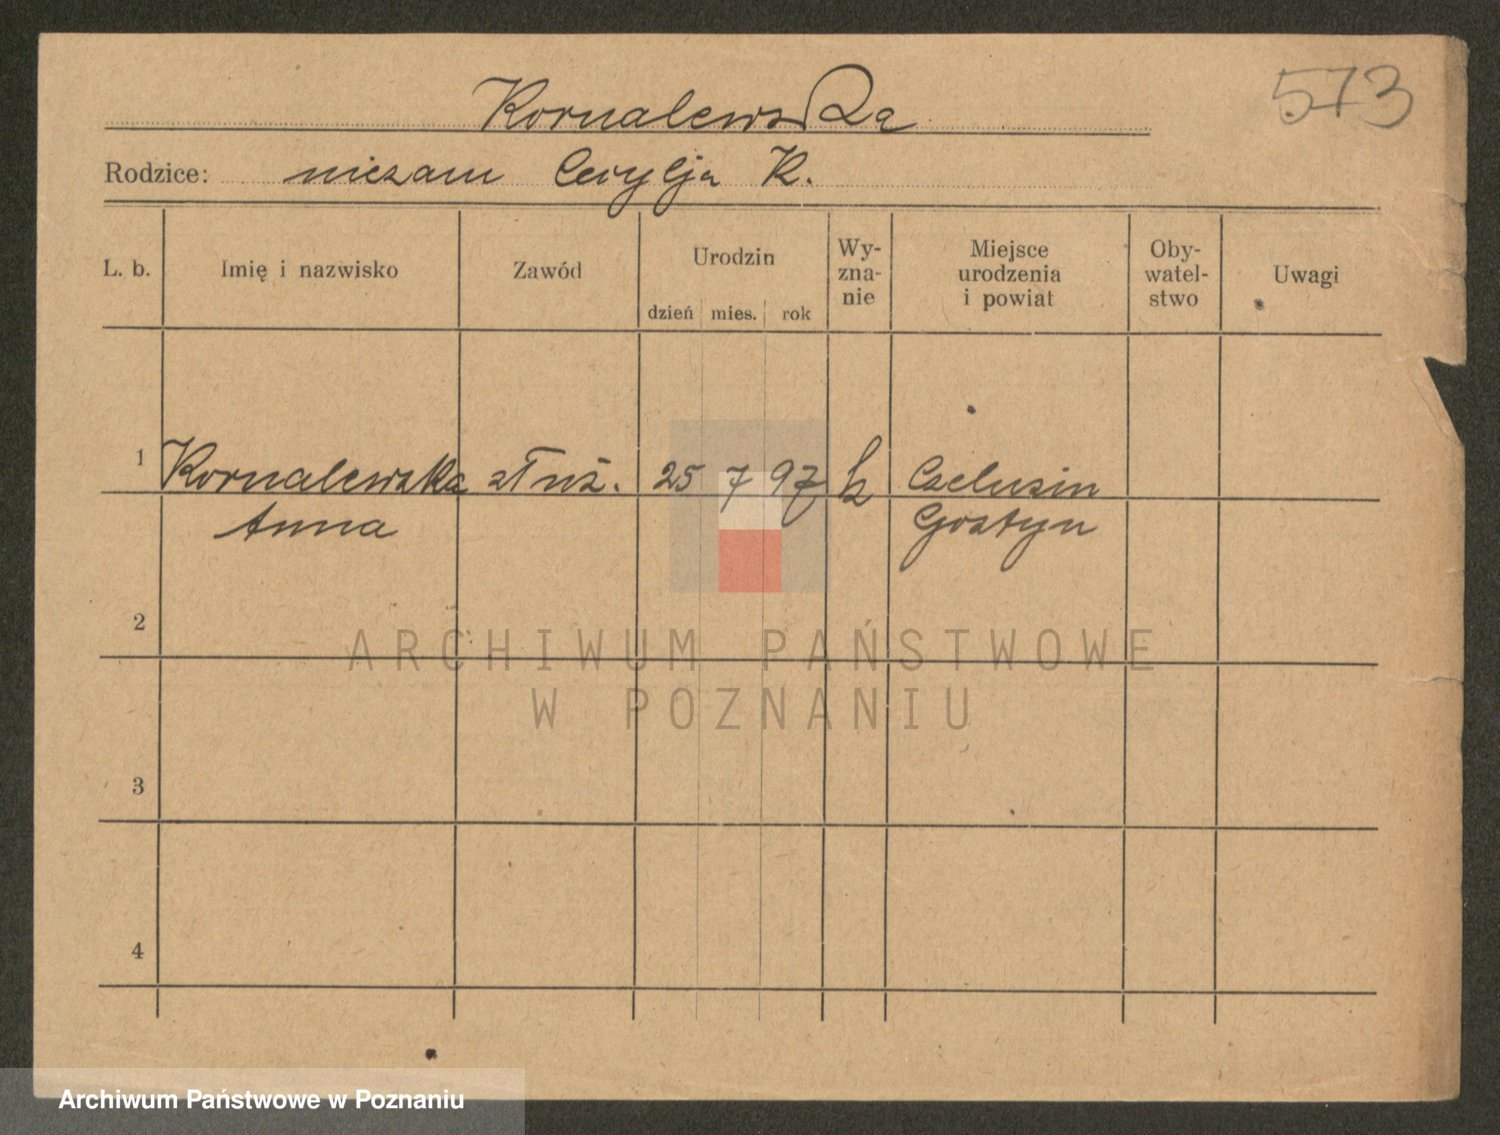 573
Kornalewska
Rodzice: niezam Cecylja K.
L. b. Imię i nazwisko Zawód Urodzin dzień mies. rok Wy-zna-nie Miejsce urodzenia i powiat Oby-watel-stwo Uwagi
1 Kornalewska służ. 25 7 97 k Czeluścin
Anna Gostyn
2
3
4
ARCHIWUM PAŃSTWOWE
W POZNANIU
Archiwum Państwowe w Poznaniu